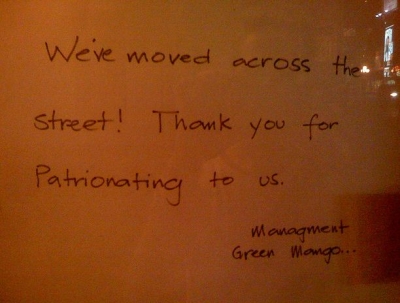 We've moved across the
street! Thank you for
Patrionating to us.
Managment
Green Mango...